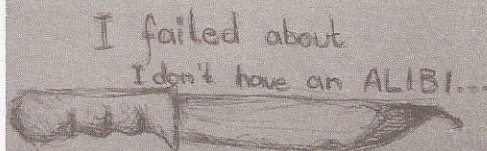 I failed about
I don't have an ALIBI...